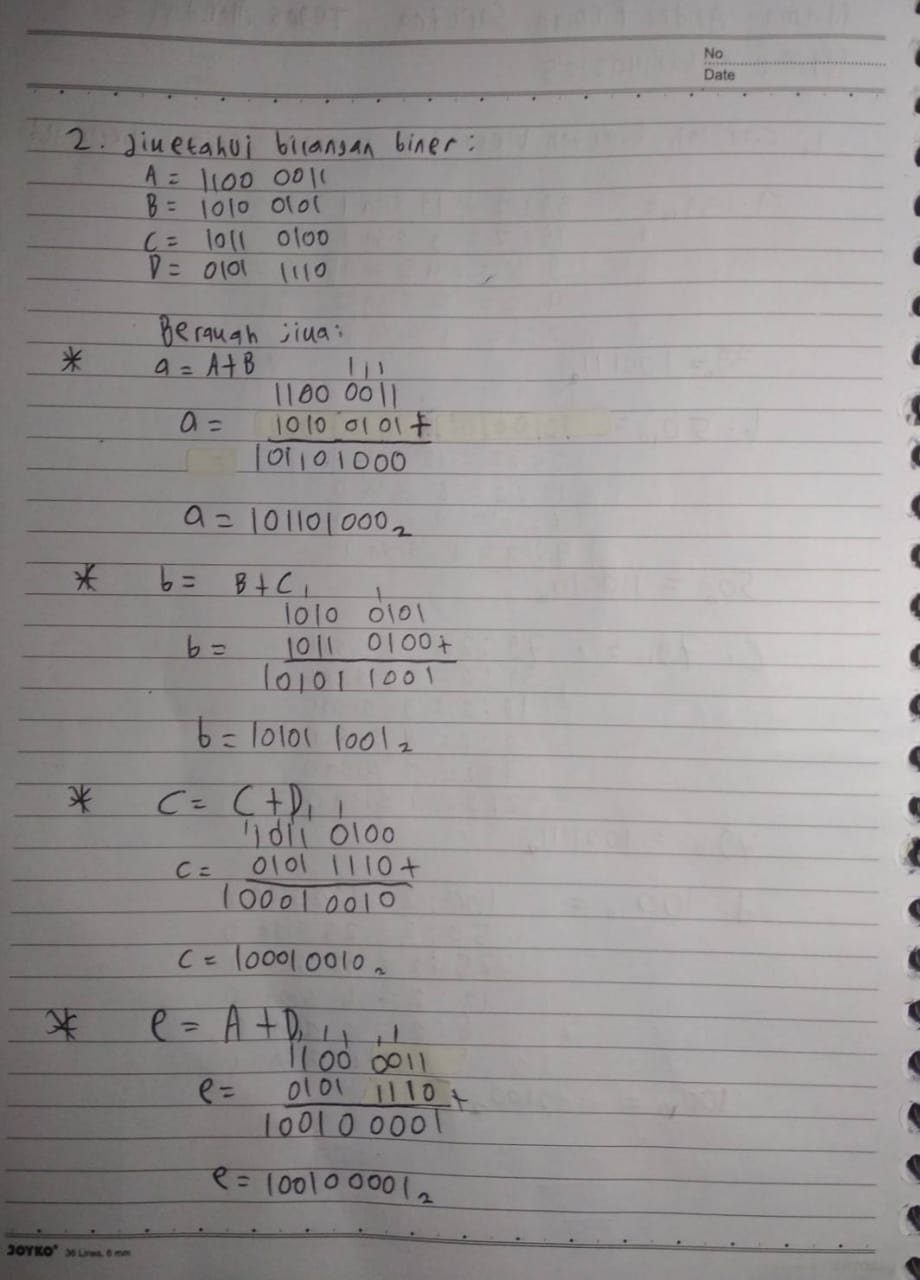 No
Date
2. diketahui bilangan biner:
A = 1100 0011
B = 1010 0101
C = 1011 0100
D = 0101 1110
Berapah jika:
* a = A+B 111
1100 0011
a = 1010 0101+
101101000
a = 101101000₂
* b = B+C 1 1
1010 0101
b = 1011 0100+
101011001
b = 10101 1001₂
* C = C+D 1 1
11 1011 0100
c = 0101 1110+
100010010
c = 100010010₂
* e = A+D 1 1 1 1 1
1100 0011
e = 0101 1110 +
100100001
e = 100100001₂
JOYKO® 36 Lines, 6 mm